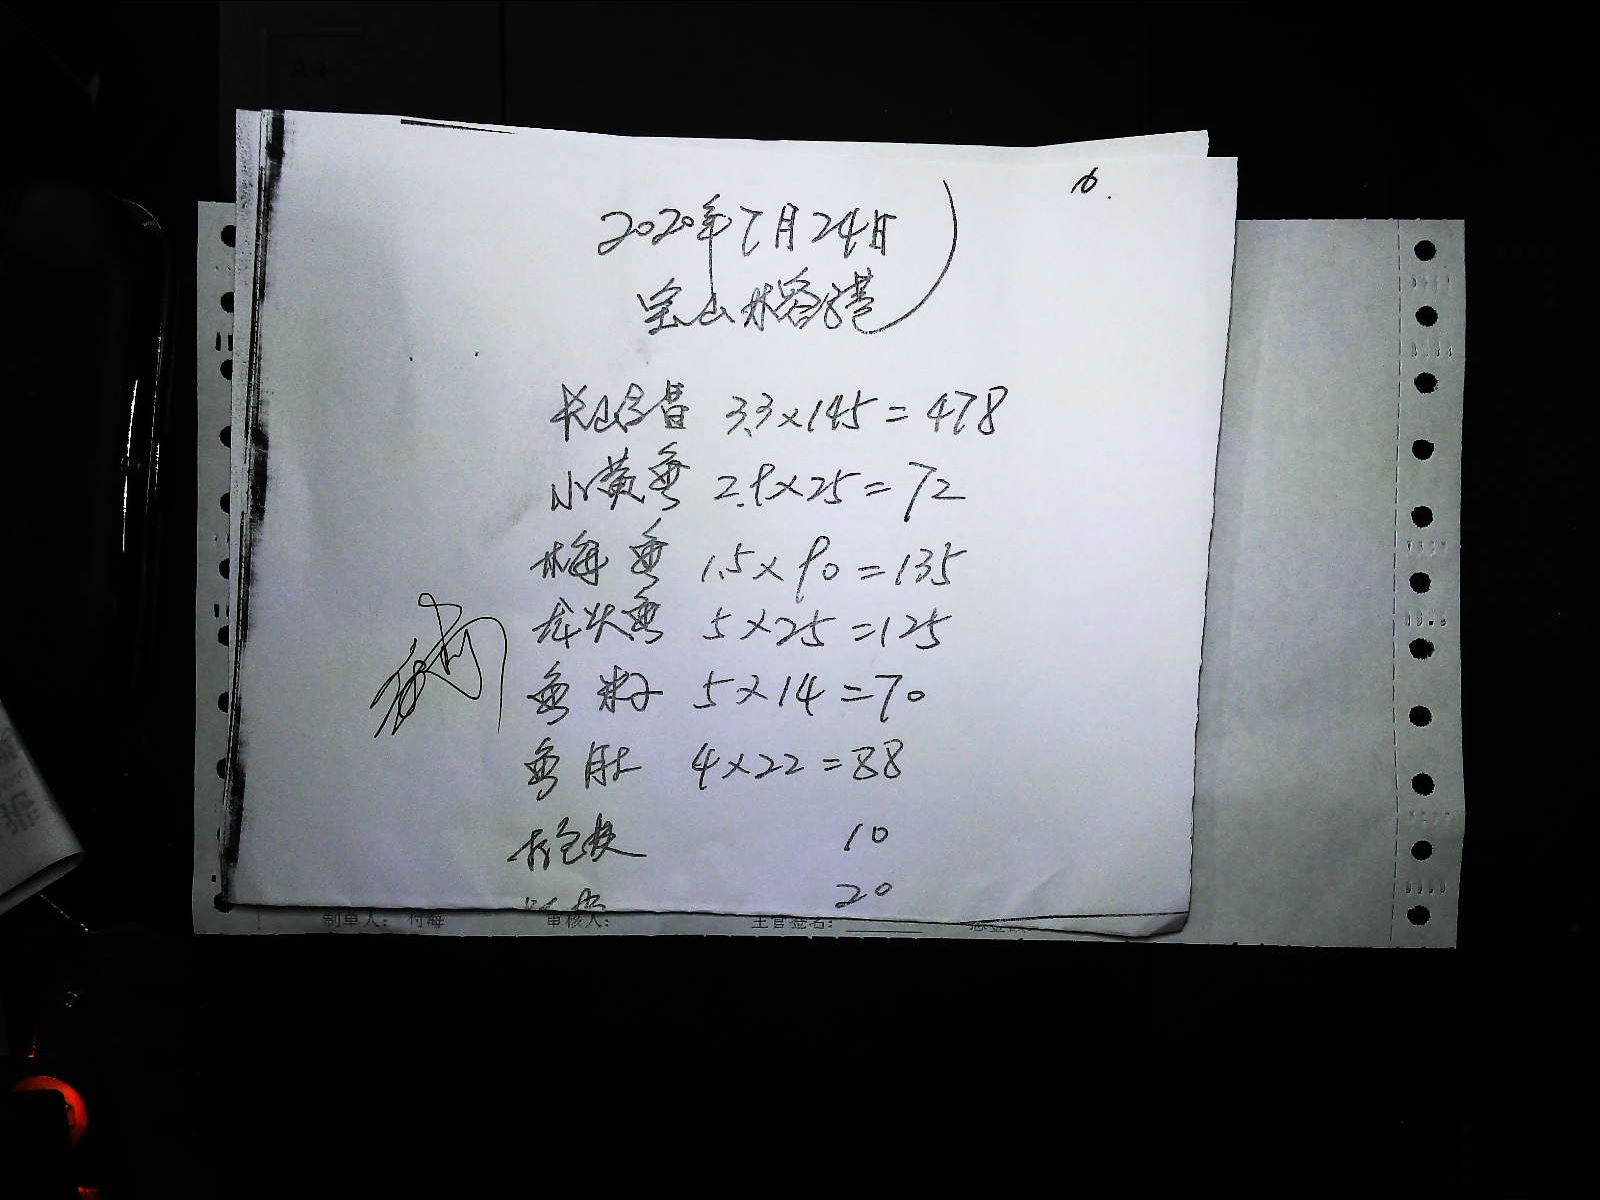 2020年7月24日
宝山
3.3×145=478
小黄鱼 2.9×25=72
梅鱼 1.5×90=135
龙头鱼 5×25=125
鱼籽 5×14=70
鱼肚 4×22=88
10
20
制单人: 付海 审核人: 主管签名: